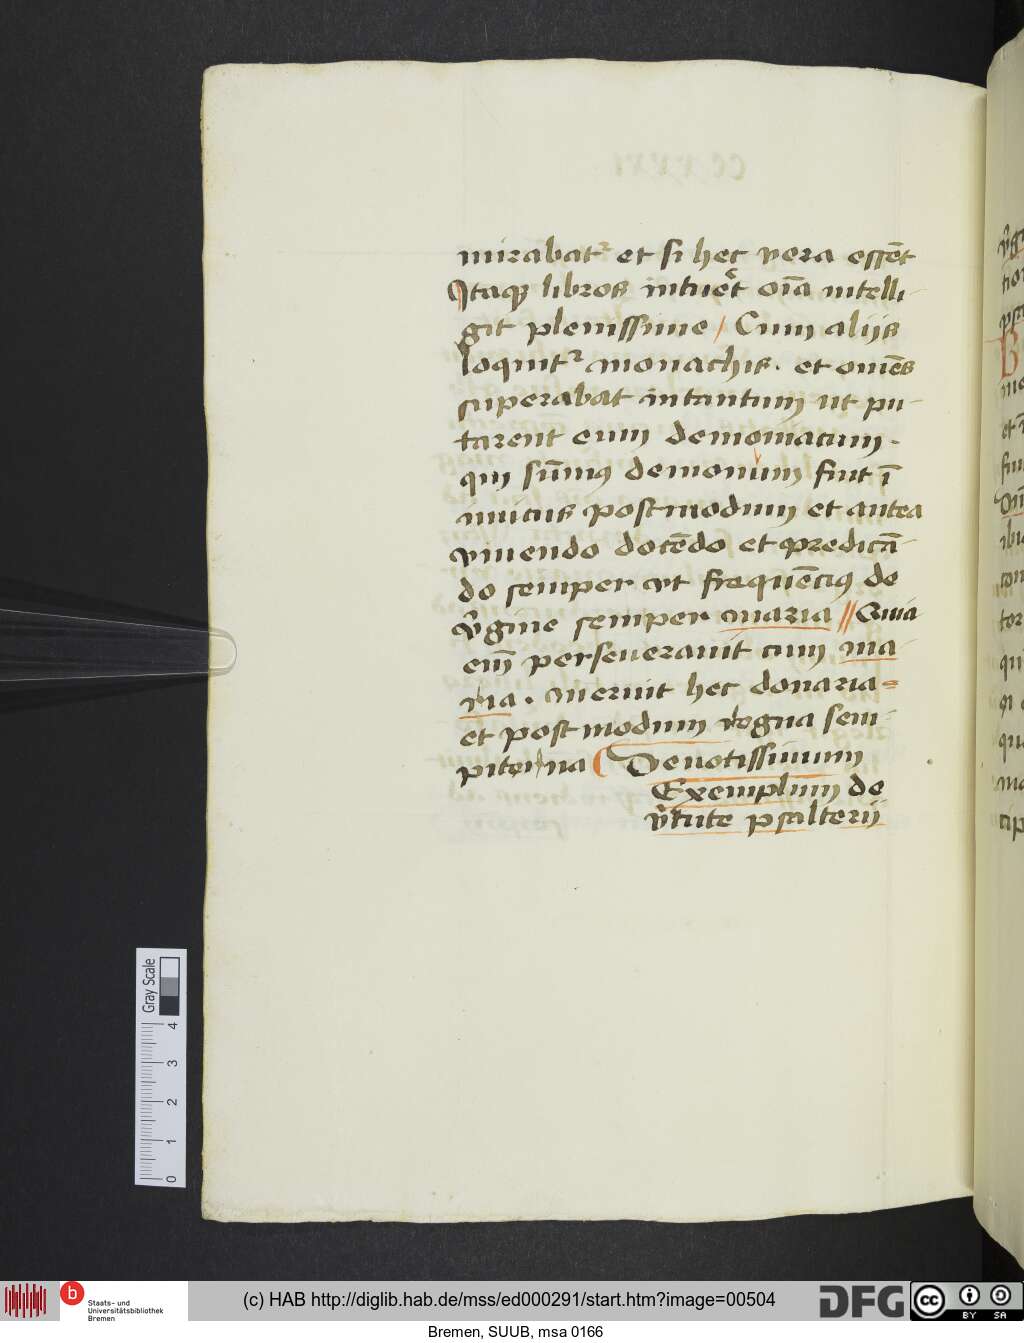 mirabatᷣ et si hec vera essēt
Itaqꝫ libros intuēt᷑ oīa intelli
git plenissime / Cum aliis
loquitᷣ monachis. et omēs
superabat intantum ut pu-
tarent eum demoniacum.
qui sūmꝰ demonum fuit ī
imicus postmodum et antea
viuendo docēdo et predicā-
do semper vt frequēcius de
v̄gine semper maria // Quia
em̄ perseuerauit cum ma-
ria. meruit hec donaria
et postmodum regna sem-
piterna Deuotissimum
Exemplum de
v̄tute psalterii
Gray Scale
0 1 2 3 4
b Staats- und
Universitätsbibliothek
Bremen
(c) HAB http://diglib.hab.de/mss/ed000291/start.htm?image=00504
DFG
cc BY SA
Bremen, SUUB, msa 0166